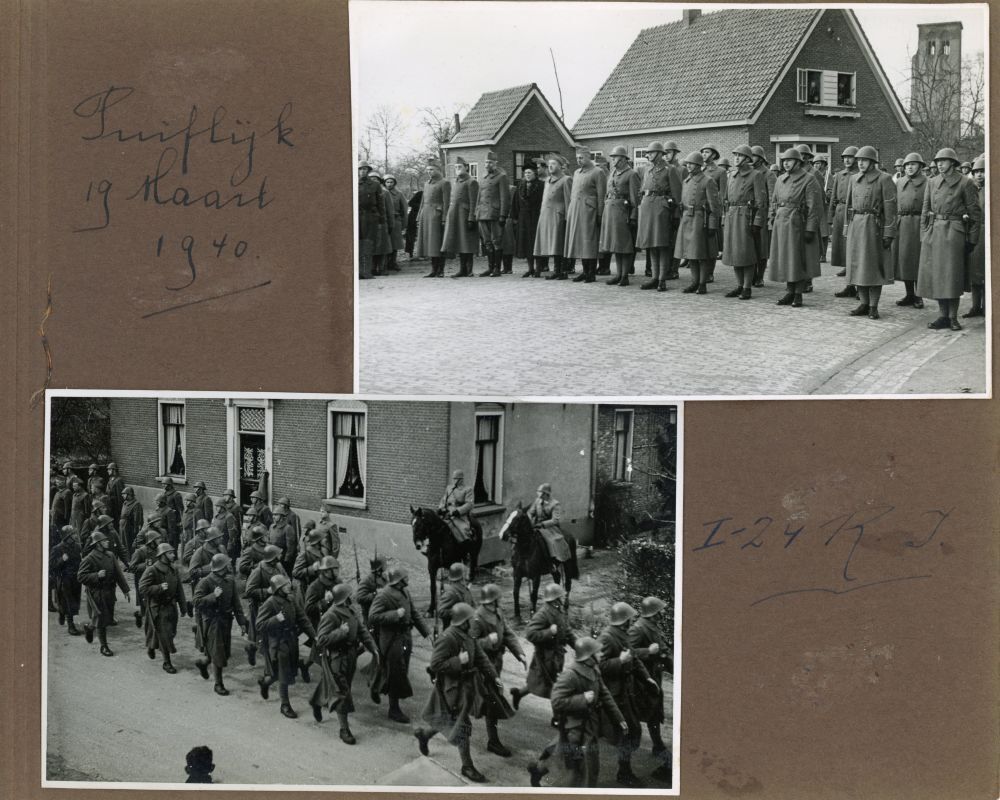 Puiflijk
19 Maart
1940.
I-24 R. I.